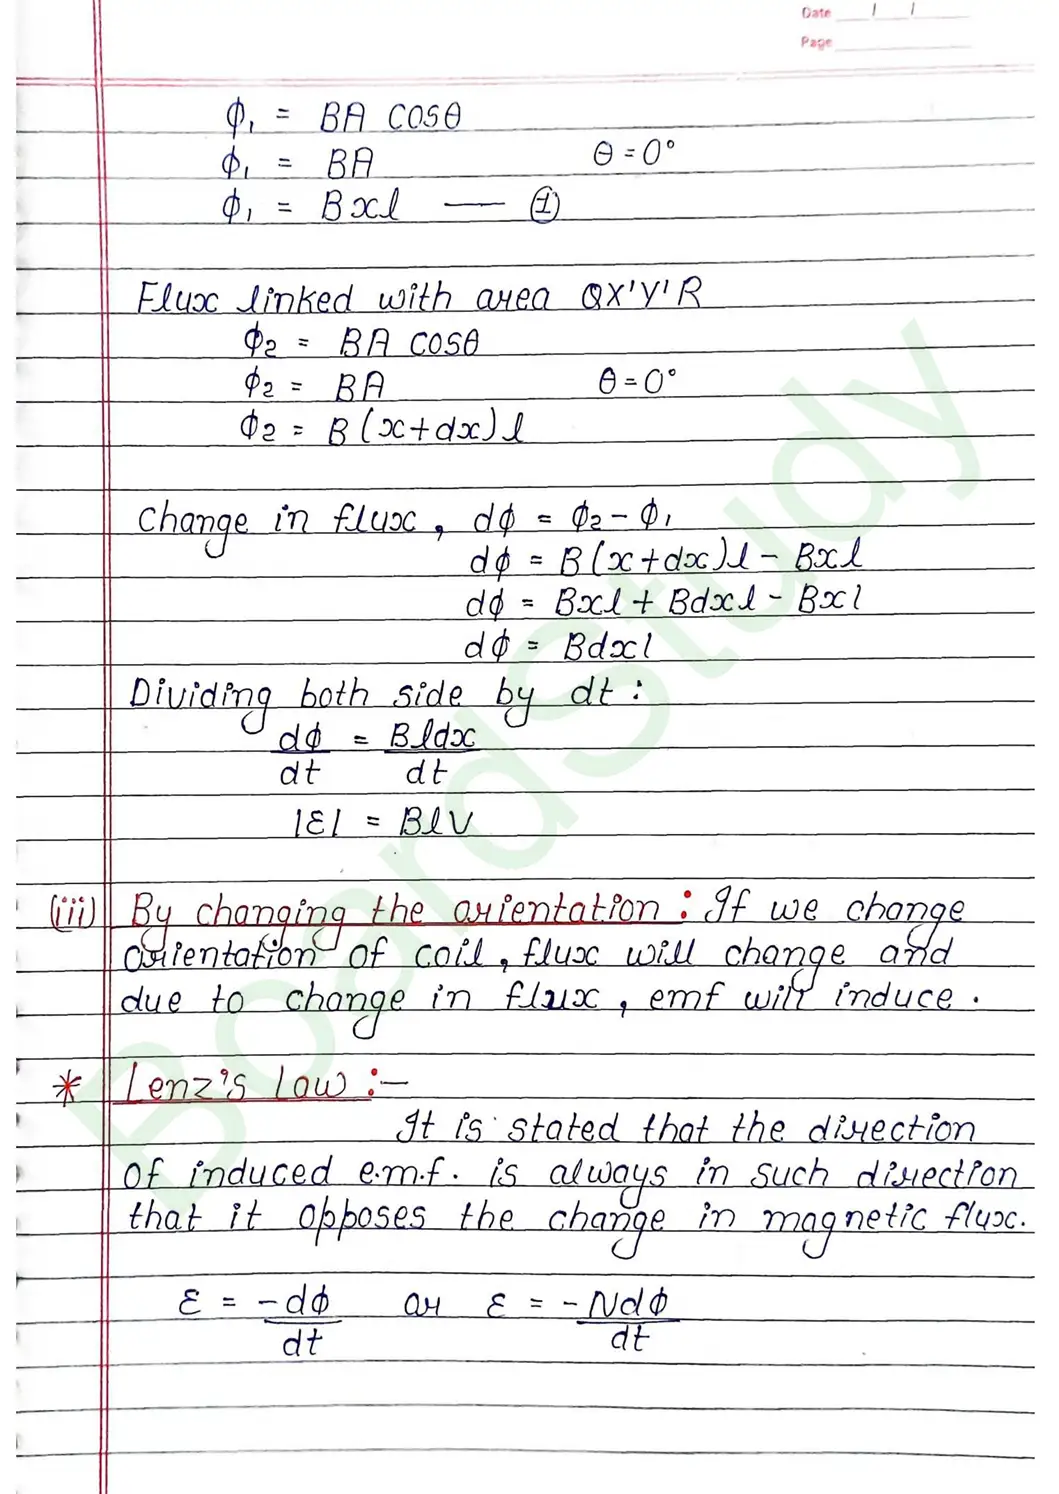 Date / /
Page
ϕ₁ = BA cosθ
ϕ₁ = BA θ = 0°
ϕ₁ = Bxl — ①
Flux linked with area QX'Y'R
ϕ₂ = BA cosθ
ϕ₂ = BA θ = 0°
ϕ₂ = B(x+dx)l
Change in flux, dϕ = ϕ₂ - ϕ₁
dϕ = B(x+dx)l - Bxl
dϕ = Bxl + Bdxl - Bxl
dϕ = Bdxl
Dividing both side by dt :
dϕ = Bldx
dt dt
|ε| = BlV
(iii) By changing the orientation : If we change
orientation of coil, flux will change and
due to change in flux, emf will induce.
* Lenz's Law :-
It is stated that the direction
of induced e.m.f. is always in such direction
that it opposes the change in magnetic flux.
ε = -dϕ or ε = -Ndϕ
dt dt
BoardStudy